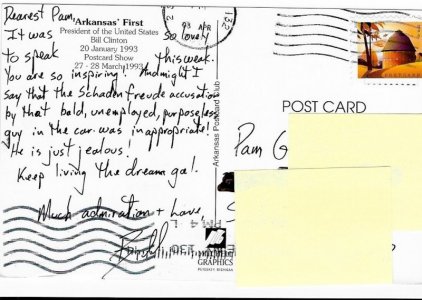 Dearest Pam,
'Arkansas' First
President of the United States
Bill Clinton
20 January 1993
Postcard Show
27 - 28 March 1993
It was so lovely
to speak this week.
You are so inspiring! And might I
say that the Schaden freude accusation
by that bald, unemployed, purposeless
guy in the car was inappropriate!
He is just jealous!
Keep living the dream gal!
Much admiration + love,
Arkansas Postcard Club
POST CARD
Pam G
GRAPHICS
PETOSKEY MICHIGAN